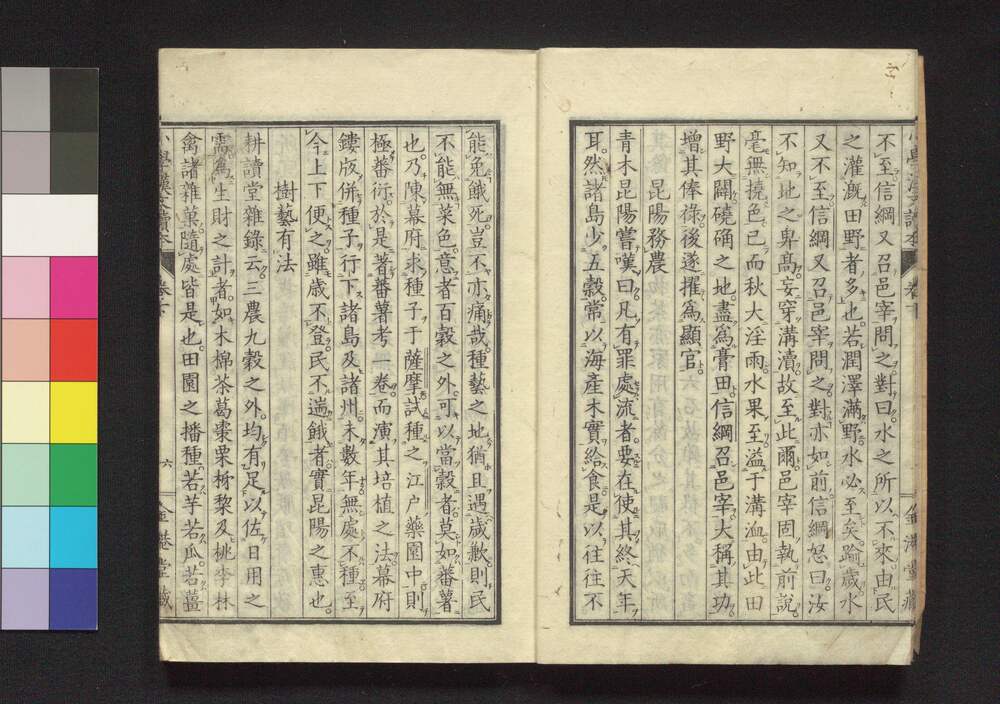 不至信綱又召邑宰問之對曰水之所以不來由民
之灌漑田野者多也若潤澤滿野水必至矣踰歲水
又不至信綱又召邑宰問之對亦如前信綱怒曰汝
不知地之卑高妄穿溝瀆故至此爾邑宰固執前說
毫無撓色已而秋大淫雨水果至溢于溝洫由此田
野大闢磽确之地盡爲膏田信綱召邑宰大稱其功
增其俸祿後遂擢爲顯官
昆陽務農
青木昆陽嘗嘆曰凡有罪處流者要在使其終天年
耳然諸島少五穀常以海產木實給食是以往往不
能免餓死豈不亦痛哉種藝之地猶且遇歲歉則民
不能無菜色意者百穀之外可以當穀者莫如蕃薯
也乃陳幕府求種子于薩摩試種之江戶藥園中則
極蕃衍於是著蕃薯考一卷而演其培植之法幕府
鏤版併種子行下諸島及諸州未數年無處不種至
今上下便之雖歲不登民不遄餓者實昆陽之惠也
樹藝有法
耕讀堂雜錄云三農九穀之外均有足以佐日用之
需爲生財之計者如木棉茶葛棗栗柹棃及桃李林
禽諸雜菓隨處皆是也田園之播種若芋若瓜若薑
小學漢文讀本 卷下 六 金港堂藏